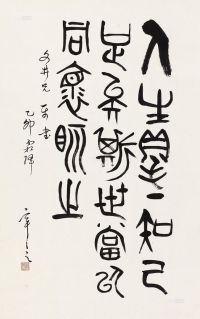 人生得一知己
足矣斯世當以
同懷視之
文井兄 属書
乙卯霜降